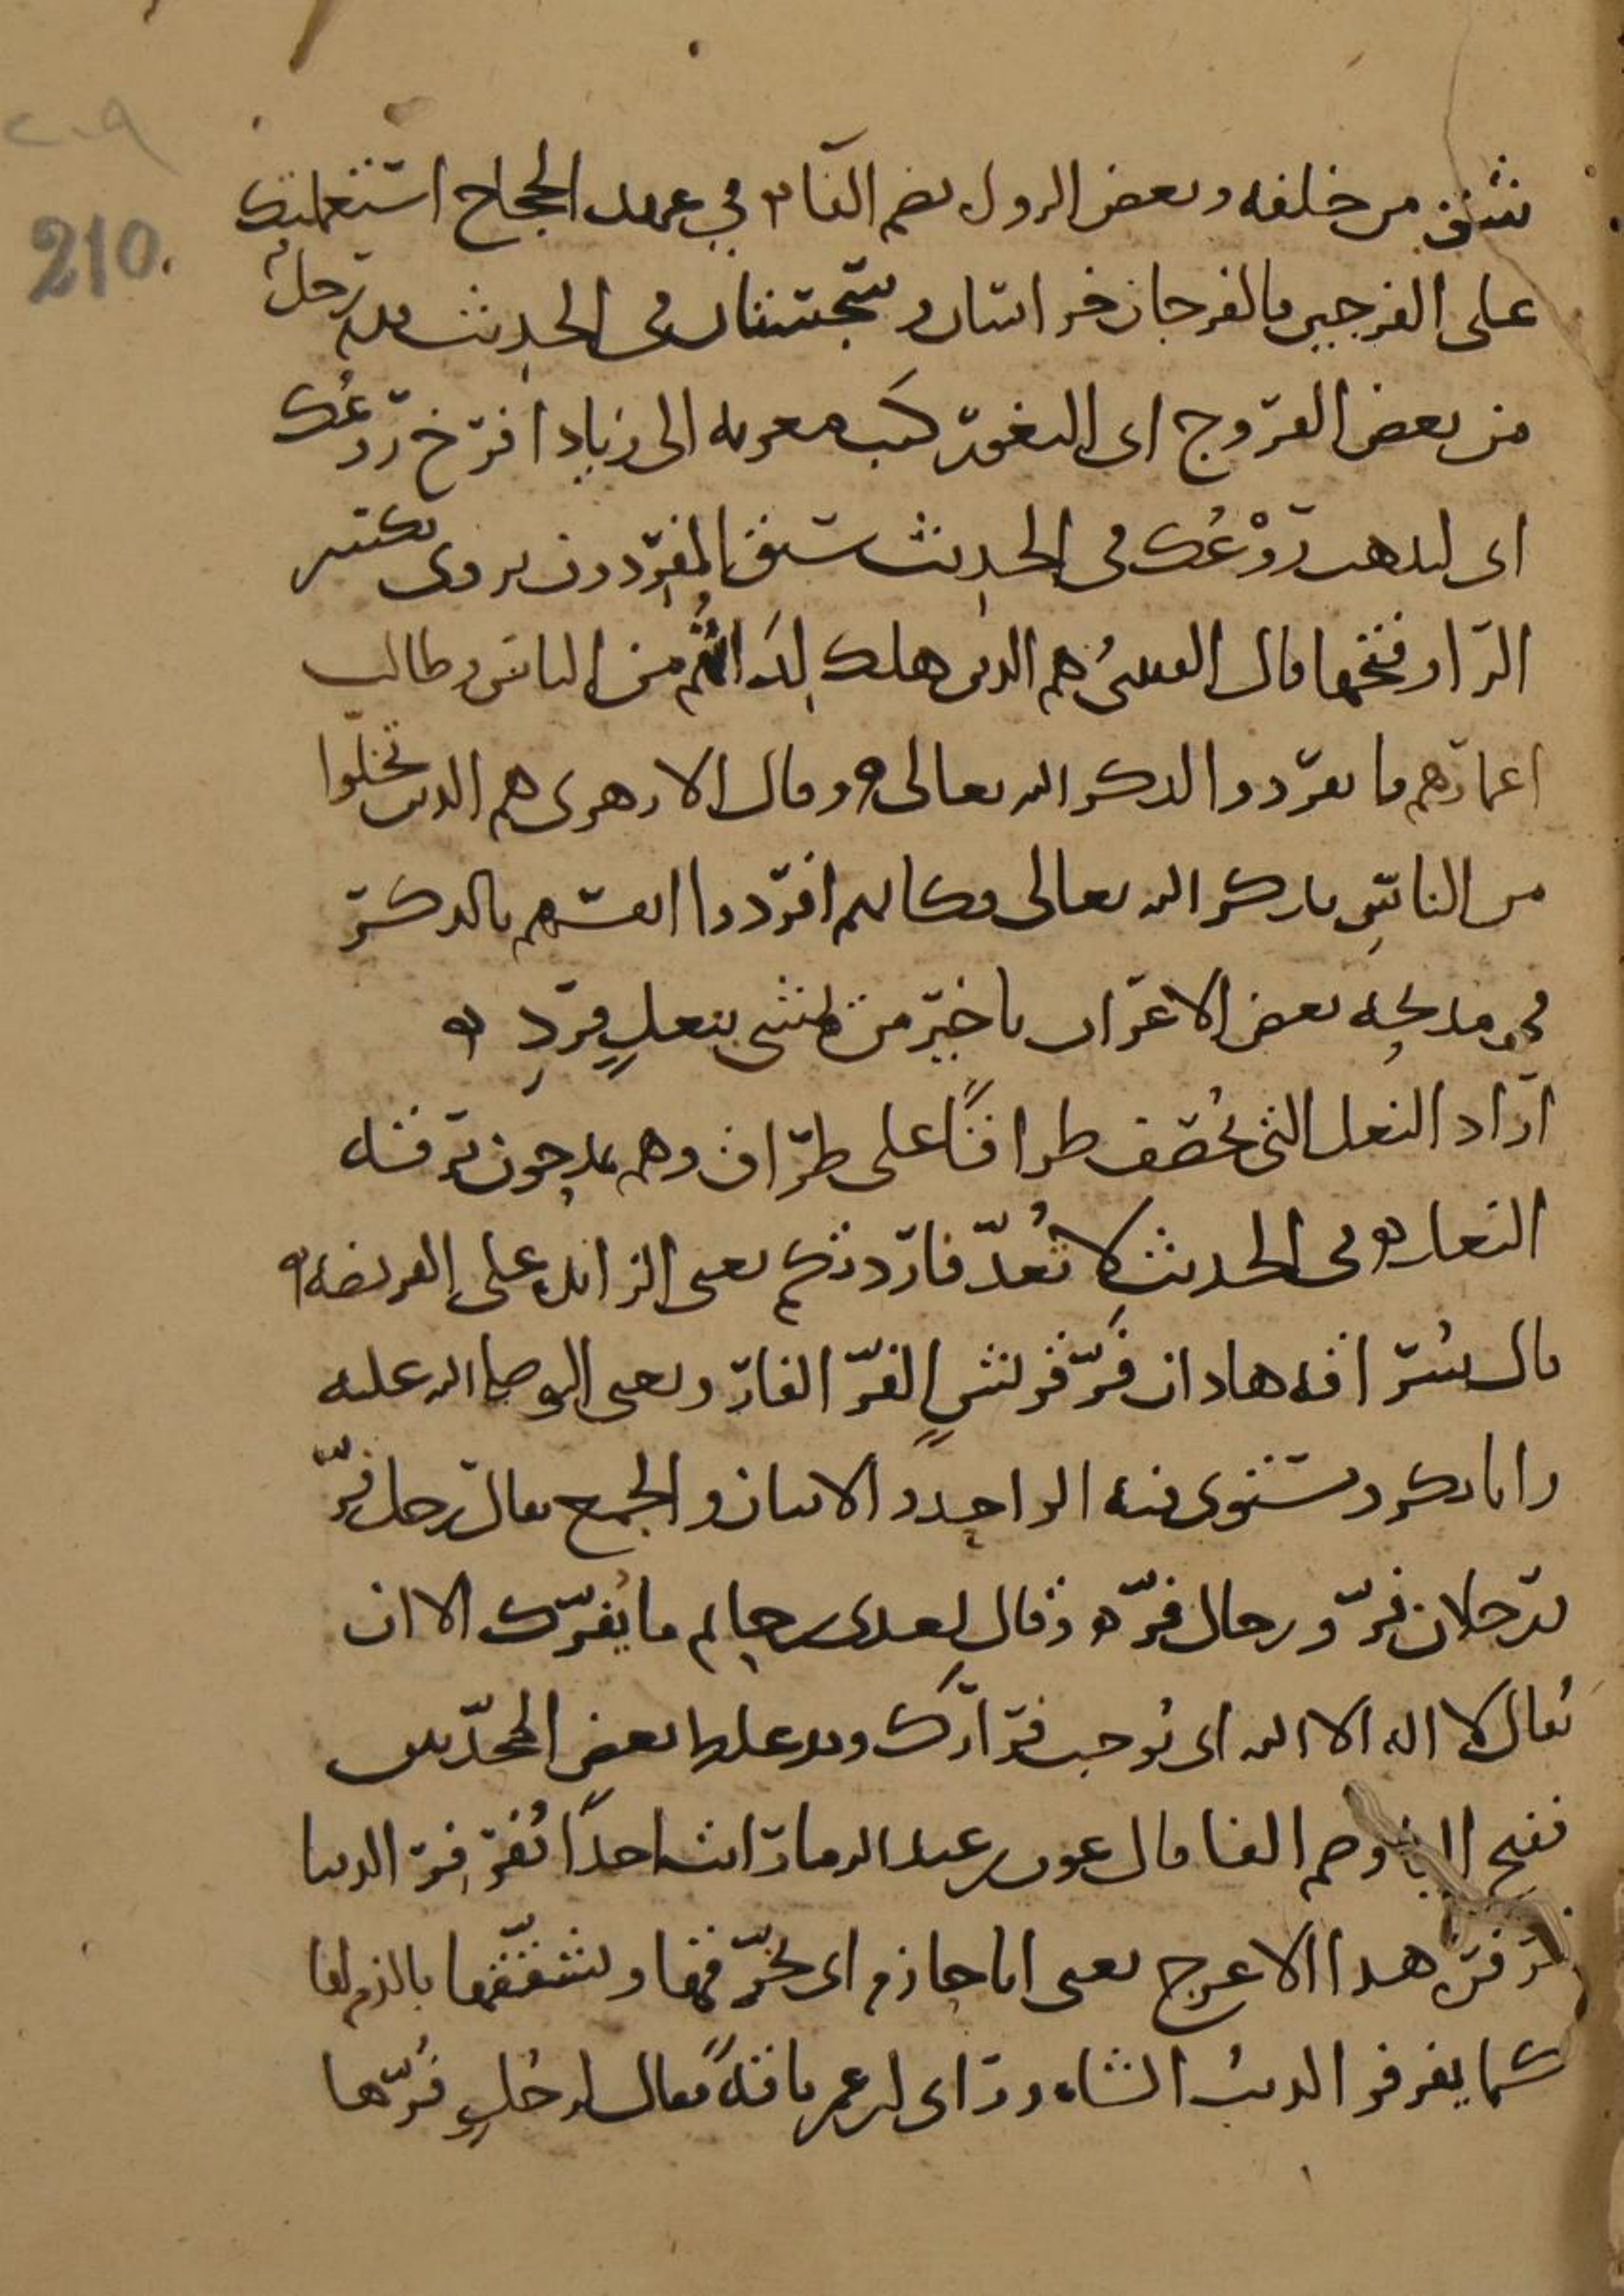 ٢٠٩
210.
شق من خلفه وبعض الرول بضم الفاء في عهد الحجاج استعملتك
على الفرجين فالفرجان خراسان وسجستان في الحديث قدم رجل
من بعض الفروج اى الثغور كتب معوية الى زياد افرخ روعك
اى ليذهب روْعُك في الحديث سبق المفردون يروى بكسر
الراء وفتحها قال القتيبى هم الذين هلك لِدَاتُهم من الناس وطالت
اعمارهم فانفردوا لذكر الله تعالى وقال الازهرى هم الذين تخلّوا
من الناس بذكر الله تعالى فكانهم افردوا انفسهم بالذكر
في مدحه بعض الاعراب يا خير من يمشى بنعلٍ فردِ
اراد النعل التى تخصف طراقًا على طراق وهم يمدحون برقة
النعال وفى الحديث لا تُعدّ فاردتكم يعنى الزائدة على الفريضة
قال سراقة هذان فَرّ قريشٍ الفرّ الفارّ ويعنى النبي صلى الله عليه
وابا بكر ويستوى فيه الواحد والاثنان والجمع يقال رجل فرّ
ورجلان فرّ ورجال فرّ وقال لعدى بن حاتم ما يُفرّك الا ان
يُقال لا اله الا الله اى يُوجب فرارَك وقد غلط بعض المحدّثين
ففتح اليا وضم الفا قال عون بن عبد الله ما رايت احدًا يُفرفِر الدنيا
فرفرة هذا الاعرج يعنى ابا حازم اى يخرّقها ويشقّقها بالذم لها
كما يفرفر الذئبُ الشاة وراى ابن عمر ناقةً فقال لرجُلٍ فُرّها